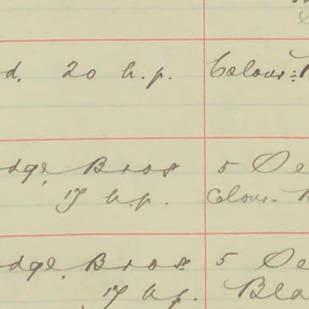 d. 20 h.p. Colour:
dge Bros 5 Se
17 h.p. Colour.
dge. Bros 5 Se
17 h.p. Bla